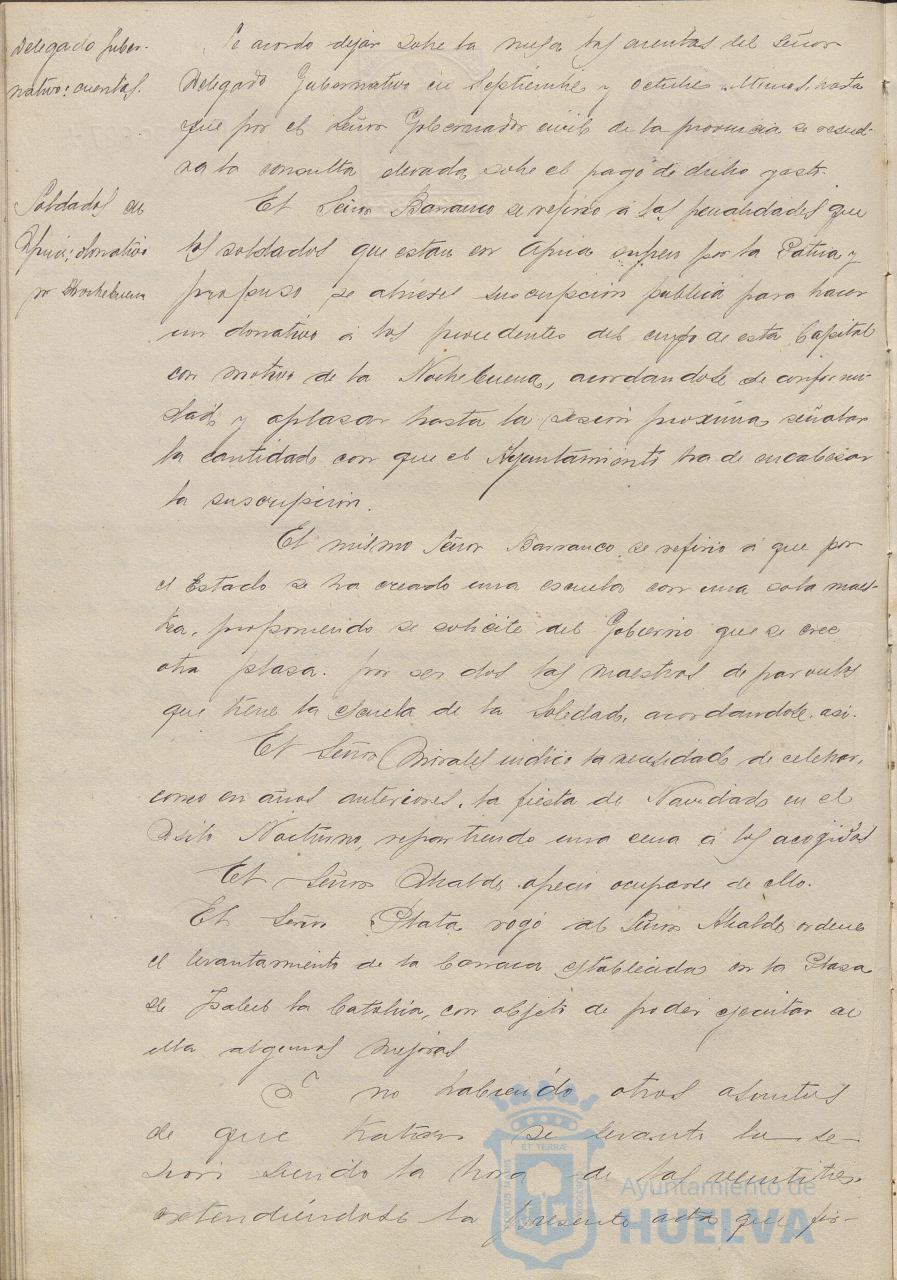 Delegado Guber-
nativo: cuentas.
Se acordó dejar sobre la mesa las cuentas del Señor
Delegado Gubernativo en Septiembre y octubre últimos, hasta
que por el Señor Gobernador civil de la provincia se resuel-
va la consulta elevada sobre el pago de dicho gasto.
Soldados en
Africa: donativo
por Nochebuena
El Señor Barranco se refirió á las penalidades que
los soldados que estan en Africa sufren por la Patria y
propuso se abriese suscripción publica para hacer
un donativo á los procedentes del cupo de esta Capital
con motivo de la Nochebuena, acordándose de conformi-
dad y aplazar hasta la sesión proxima señalar
la cantidad con que el Ayuntamiento ha de encabezar
la suscripción.
El mismo Señor Barranco se refirió á que por
el Estado se ha creado una escuela con una sola maes-
tra, proponiendo se solicite del Gobierno que se cree
otra plaza por ser dos las maestras de parvulos
que tiene la Escuela de la Soledad, acordandose asi.
El Señor Morales indicó la necesidad de celebrar,
como en años anteriores, la fiesta de Navidad en el
Asilo Nocturno, repartiendo una cena á los acogidos
El Señor Alcalde ofreció ocuparse de ello.
El Señor Plata rogó al Señor Alcalde ordene
el levantamiento de la barraca establecida en la Plaza
de Isabel la Católica, con objeto de poder ejecutar en
ella algunas mejoras
Y no habiendo otros asuntos
de que tratar se levantó la se-
sion siendo la hora de las veintitres,
extendiéndose la presente acta que fir-
ET TERRA
Ayuntamiento de
HUELVA